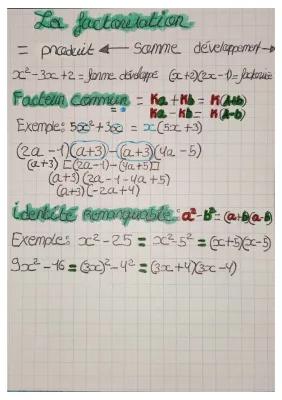 La factorisation
= produit ← somme développement →
x²-3x+2 = forme développé (x+2)(2x-1) = factorisée
Facteur commun = Ka + Kb = K(a+b)
Ka - Kb = K(a-b)
Exemple: 5x²+3x = x(5x+3)
(2a-1)(a+3)-(a+3)(4a-5)
(a+3) [(2a-1)-(4a+5)]
(a+3)(2a-1-4a+5)
(a+3)(-2a+4)
identité remarquable: a²-b²=(a+b)(a-b)
Exemple: x²-25 = x²-5² = (x+5)(x-5)
9x²-16 = (3x)²-4² = (3x+4)(3x-4)